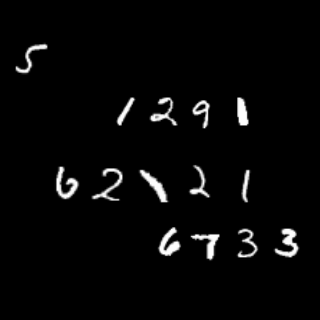 5
1291
62121
6733